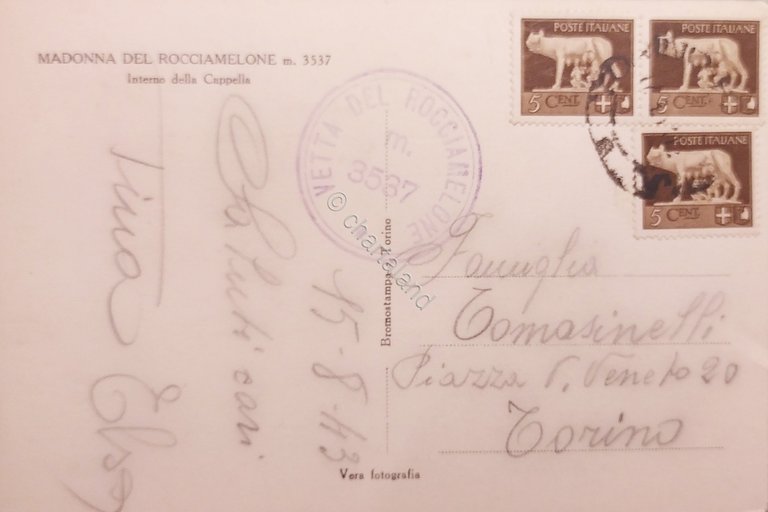 MADONNA DEL ROCCIAMELONE m. 3537
Interno della Cappella
VETTA DEL ROCCIAMELONE
m.
3537
POSTE ITALIANE
5 CENT.
POSTE ITALIANE
5 CENT.
POSTE ITALIANE
5 CENT.
15-8-43
Saluti cari
Tina Elsa
Bromostampa Torino
© chartaland
Famiglia
Tomasinelli
Piazza V. Veneto 20
Torino
Vera fotografia